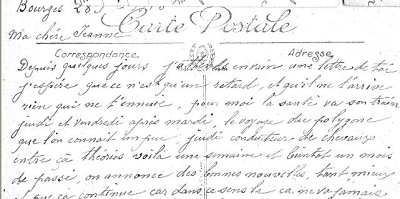 Bourges 28
Carte Postale
Ma chère Jeanne
Correspondance
Adresse
Depuis quelques jours j'attends en vain une lettre de toi
j'espère que ce n'est qu'un retard, et qu'il ne t'arrive
rien qui ne t'ennuie, pour moi la santé va son train
jeudi et vendredi après mardi, le voyage du polygone
que l'on connait un peu, jeudi conducteur de chevaux
entre ça théories voilà une semaine et bientot un mois
de passé, on annonce des bonnes nouvelles, tant mieux
que ça continue car dans ce sens là ça ne va jamais